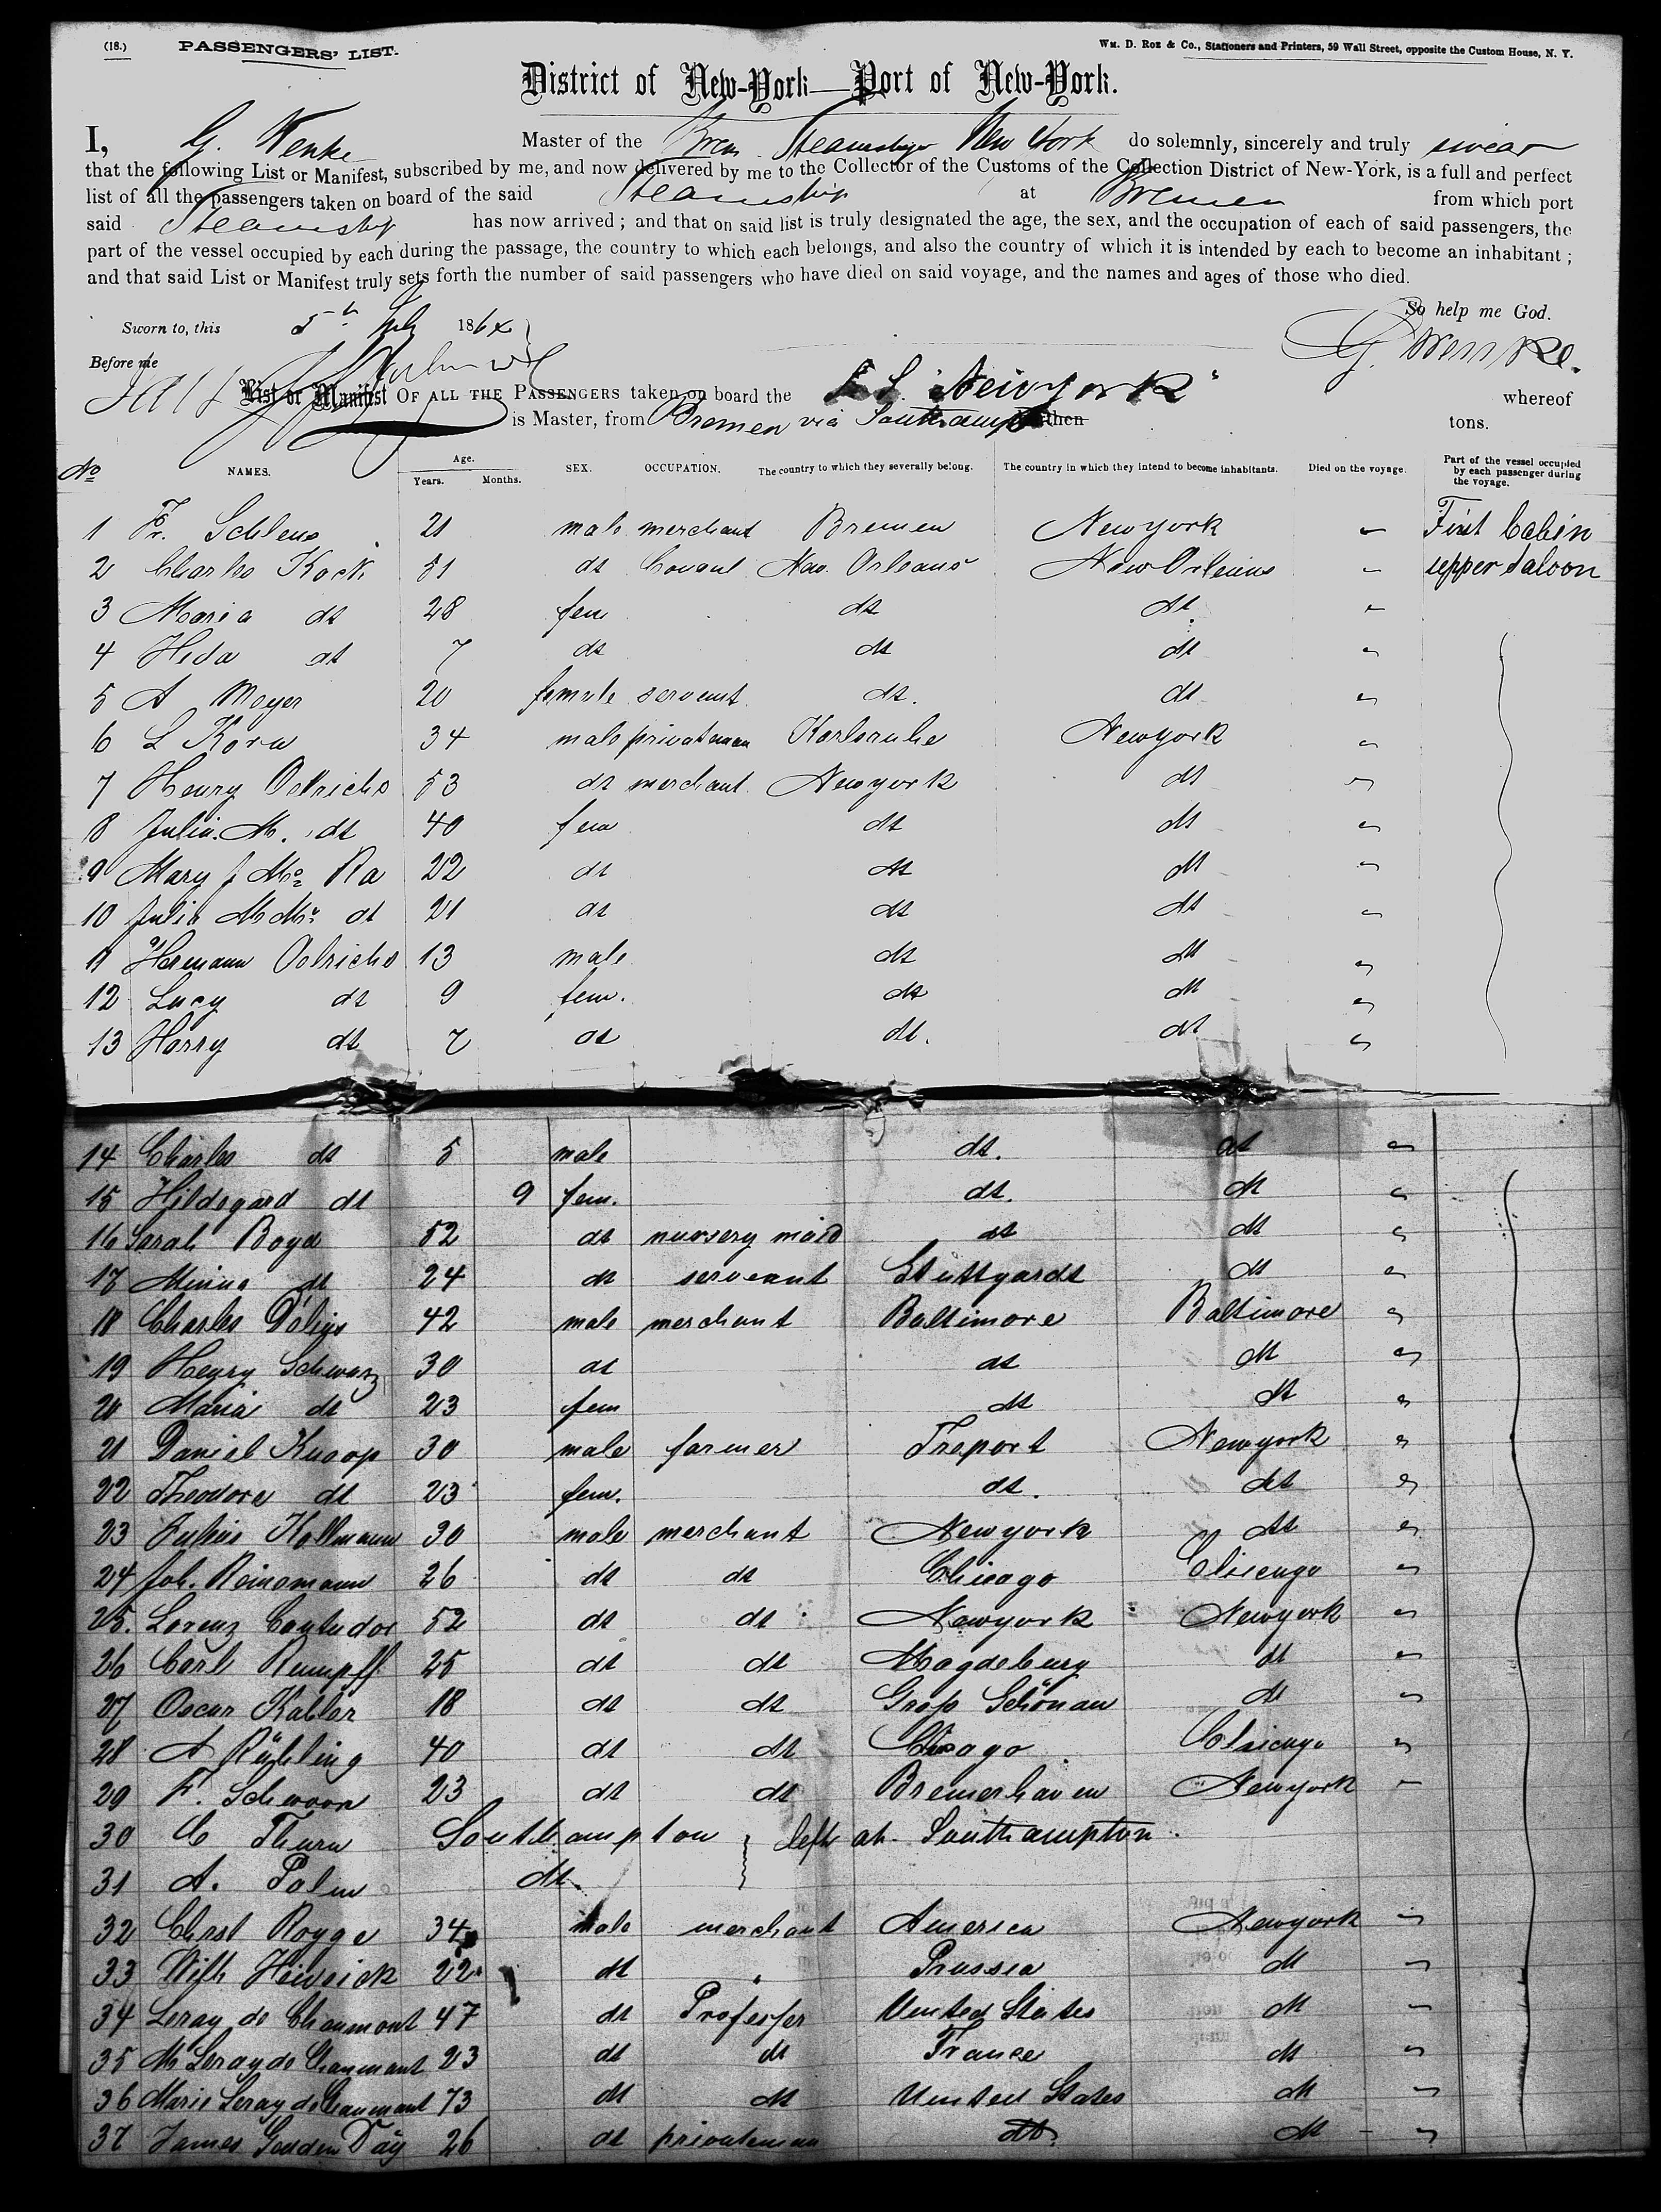 (18.) PASSENGERS' LIST. Wm. D. Roe & Co., Stationers and Printers, 59 Wall Street, opposite the Custom House, N. Y.
District of New-York—Port of New-York.
I, G. Wenke Master of the Brem Steamship New York do solemnly, sincerely and truly swear
that the following List or Manifest, subscribed by me, and now delivered by me to the Collector of the Customs of the Collection District of New-York, is a full and perfect
list of all the passengers taken on board of the said Steamship at Bremen from which port
said Steamship has now arrived; and that on said list is truly designated the age, the sex, and the occupation of each of said passengers, the
part of the vessel occupied by each during the passage, the country to which each belongs, and also the country of which it is intended by each to become an inhabitant;
and that said List or Manifest truly sets forth the number of said passengers who have died on said voyage, and the names and ages of those who died.
So help me God.
Sworn to, this 5th July 1864
G. Wenke.
Before me
List or Manifest OF ALL THE PASSENGERS taken on board the S. S. "Newyork" whereof
is Master, from Bremen via Southampton burthen tons.
No NAMES. Age. Years. Months. SEX. OCCUPATION. The country to which they severally belong. The country in which they intend to become inhabitants. Died on the voyage. Part of the vessel occupied by each passenger during the voyage.
1 Fr. Schleus 21 male merchant Bremen Newyork – First Cabin
2 Charles Kock 51 dt Consul New Orleans New Orleans – upper saloon
3 Maria dt 28 fem dt dt –
4 Heda dt 7 dt dt dt –
5 A Meyer 20 female servant dt. dt –
6 L Korn 34 male privateman Karlsruhe Newyork –
7 Henry Oelrichs 53 dt merchant Newyork dt –
8 Julia. M. dt 40 fem dt dt –
9 Mary J Mc Ra 22 dt dt dt –
10 Julia M Mc dt 21 dt dt dt –
11 Hermann Oelrichs 13 male dt dt –
12 Lucy dt 9 fem. dt dt –
13 Harry dt 7 dt dt. dt –
14 Charles dt 5 male dt. dt –
15 Hildegard dt 9 fem. dt. dt –
16 Sarah Boyd 52 dt nursery maid dt dt –
17 Minna dt 24 dt servant Stuttgardt dt –
18 Charles Délius 42 male merchant Baltimore Baltimore –
19 Henry Schwarz 30 dt dt dt –
20 Maria dt 23 fem dt dt –
21 Daniel Knoop 30 male farmer Freport Newyork –
22 Theodore dt 23 fem. dt. dt –
23 Julius Hollmann 30 male merchant Newyork dt –
24 Joh. Reinemann 26 dt dt Chicago Chicago –
25. Lorenz Cantador 52 dt dt Newyork Newyork –
26 Carl Rumpff 25 dt dt Magdeburg dt –
27 Oscar Kabler 18 dt dt Groß Schönau dt –
28 A Rühling 40 dt dt Chicago Chicago –
29 F. Schwoon 23 dt dt Bremerhaven Newyork –
30 C Thurn Southampton left at Southampton.
31 A. Palm dt.
32 Chrst Rogge 34 male merchant America Newyork –
33 Wilh Heidsick 22 dt Prussia dt –
34 Leray de Chaumont 47 dt Professer United States dt –
35 M Leray de Chaumant 23 dt dt France dt –
36 Marie Leray de Chaumant 73 dt dt United States dt –
37 James Gouden Day 26 dt privateman dt dt –